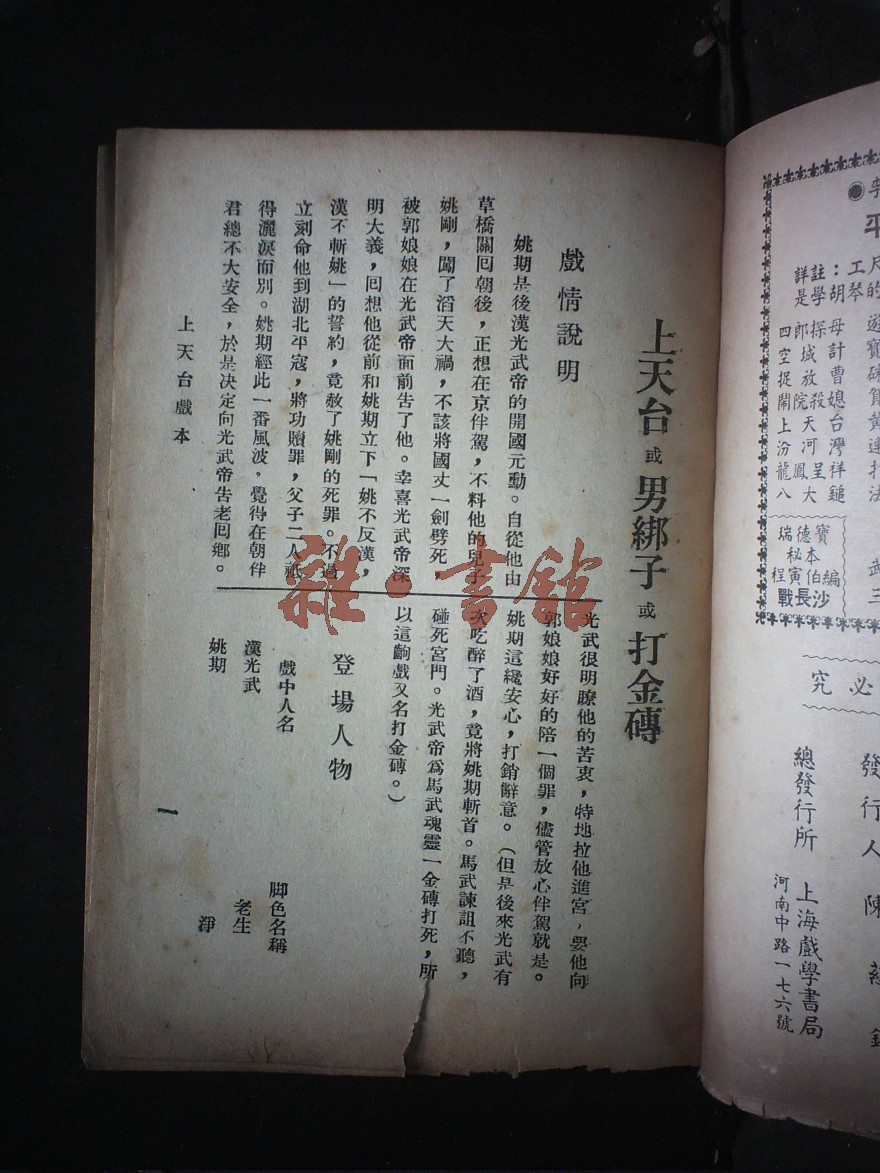 上天台或男綁子或打金磚
戲情說明
姚期是後漢光武帝的開國元勳。自從他由
草橋關囘朝後，正想在京伴駕，不料他的兒子
姚剛，闖了滔天大禍，不該將國丈一劍劈死，
被郭娘娘在光武帝面前吿了他。幸喜光武帝深
明大義，囘想他從前和姚期立下「姚不反漢，
漢不斬姚」的誓約，竟赦了姚剛的死罪。不過
立刻命他到湖北平寇，將功贖罪，父子二人祇
得灑淚而別。姚期經此一番風波，覺得在朝伴
君總不大安全，於是決定向光武帝吿老囘鄉。
光武很明瞭他的苦衷，特地拉他進宮，要他向
郭娘娘好好的陪一個罪，儘管放心伴駕就是。
姚期這纔安心，打銷辭意。（但是後來光武有
次吃醉了酒，竟將姚期斬首。馬武諫詛不聽，
碰死宮門。光武帝爲馬武魂靈一金磚打死，所
以這齣戲又名打金磚。）
登場人物
戲中人名　脚色名稱
漢光武　老生
姚期　淨
上天台戲本
一
平
詳註：工尺
是學胡琴的
四郎探母
空城計
捉放曹
鬧院殺媳
上天台
汾河灣
龍鳳呈祥
八大鎚
遊
寶
黃
連
打
法
瑞德寶
秘本
程寅伯編
戰長沙
武
三
必究
發行人陳
總發行所
上海戲學書局
河南中路一七六號
雜·書館